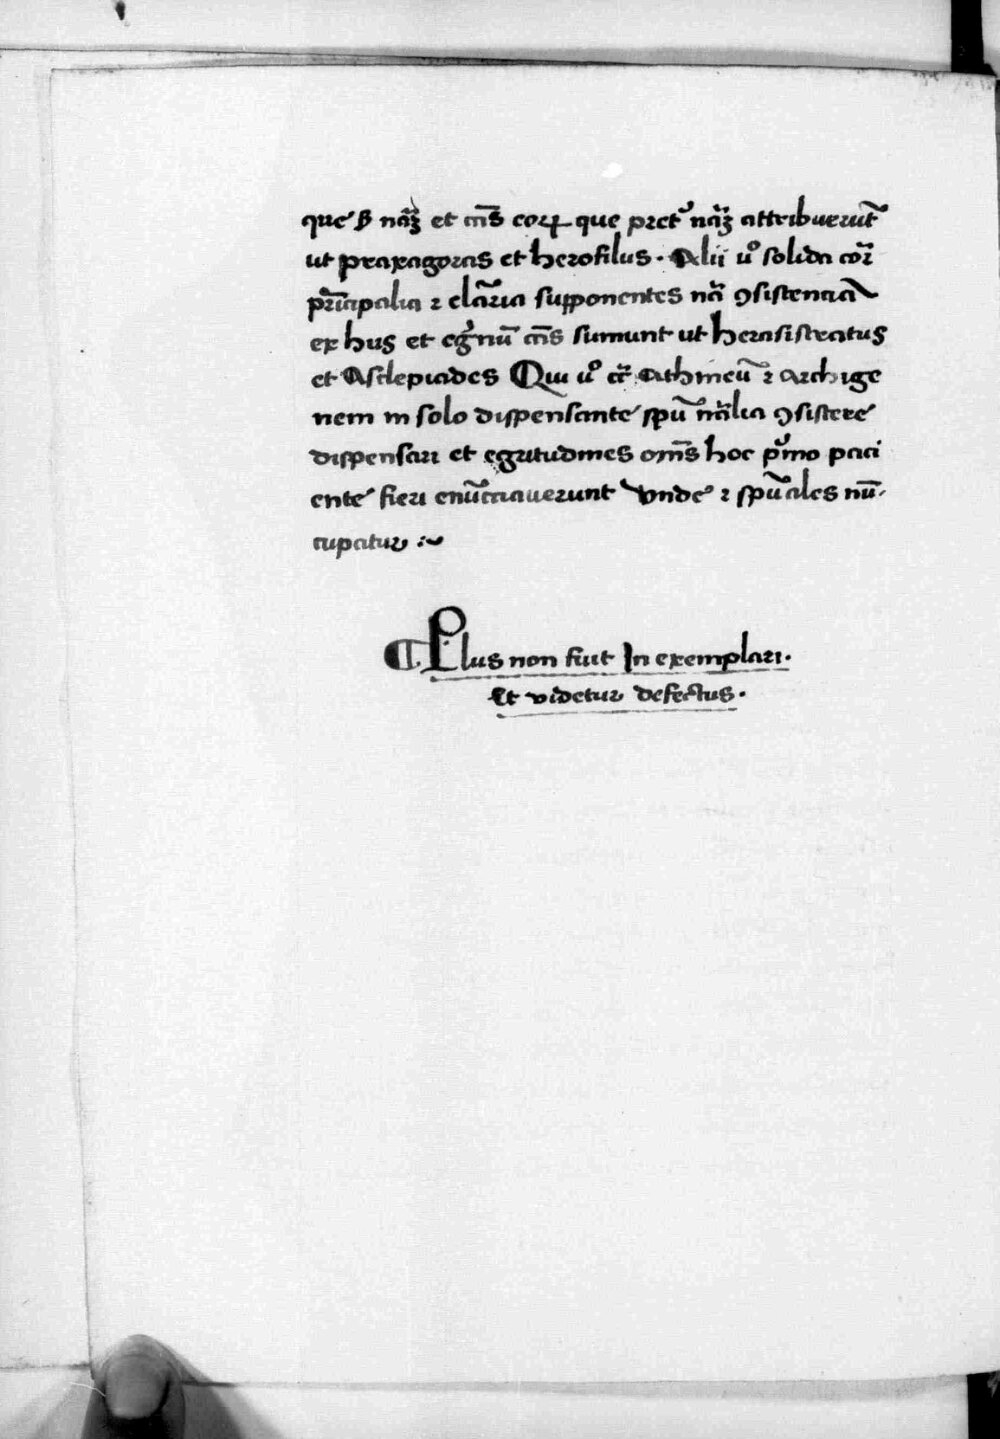 que ẜ nãꝝ et cãs coꝝ que pret᷑ nãꝝ attribuerũt
ut praxagoras et herofilus. Alii uº solida cor̃
prĩcipalia ⁊ elãria supponentes nã ꝯsistenciã
ex hus et eg̃nũ cãs sumunt ut herasistratus
et Asclepiades Qui uº cr̃ Athineũ ⁊ archige
nem in solo dispensante spũ nãlia ꝯsistere
dispensari et egritudines om̃s hoc pͥmo paci
ente fieri enũciauerunt Vnde ⁊ spũales nũ
cupatur :~
¶ Plus non fuit In exemplari.
Et videtur defectus.